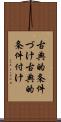 古典的条件
づけ古典的
条件付け